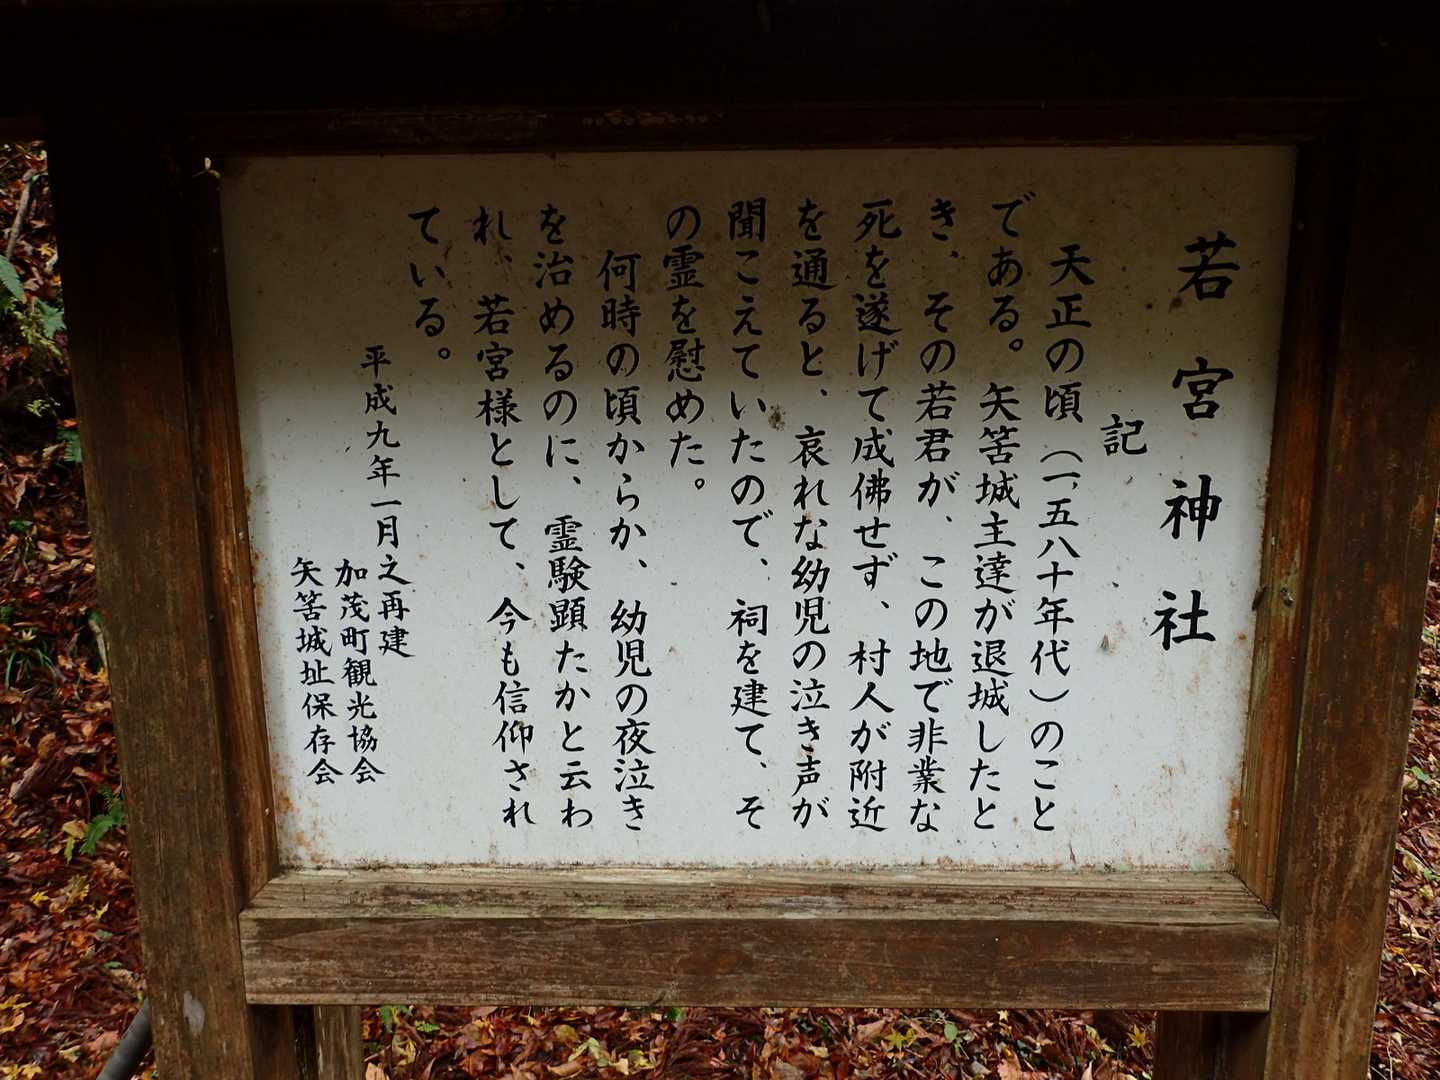 若宮神社
記
天正の頃（一、五八十年代）のこと
である。矢筈城主達が退城したと
き、その若君が、この地で非業な
死を遂げて成佛せず、村人が附近
を通ると、哀れな幼児の泣き声が
聞こえていたので、祠を建て、そ
の霊を慰めた。
何時の頃からか、幼児の夜泣き
を治めるのに、霊験顕たかと云わ
れ、若宮様として、今も信仰され
ている。
平成九年一月之再建
加茂町観光協会
矢筈城址保存会